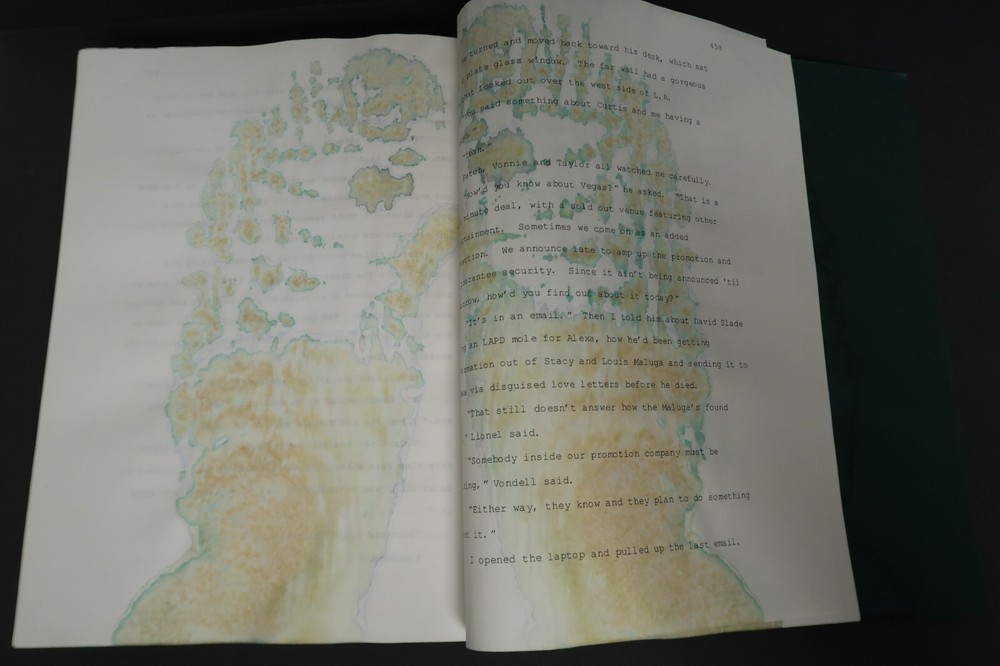 438
turned and moved back toward his desk, which sat
plate glass window. The far wall had a gorgeous
looked out over the west side of L.A.
said something about Curtis and me having a
"Yeah."
Vonnie and Taylor all watched me carefully.
you know about Vegas?" he asked. "That is a
minute deal, with a sold out venue featuring other
tainment. Sometimes we come on as an added
ction. We announce late to amp up the promotion and
arantee security. Since it ain't being announced 'til
ow, how'd you find out about it today?"
"It's in an email." Then I told him about David Slade
g an LAPD mole for Alexa, how he'd been getting
rmation out of Stacy and Louis Maluga and sending it to
via disguised love letters before he died.
"That still doesn't answer how the Maluga's found
" Lionel said.
"Somebody inside our promotion company must be
ing," Vondell said.
"Either way, they know and they plan to do something
it."
I opened the laptop and pulled up the last email.